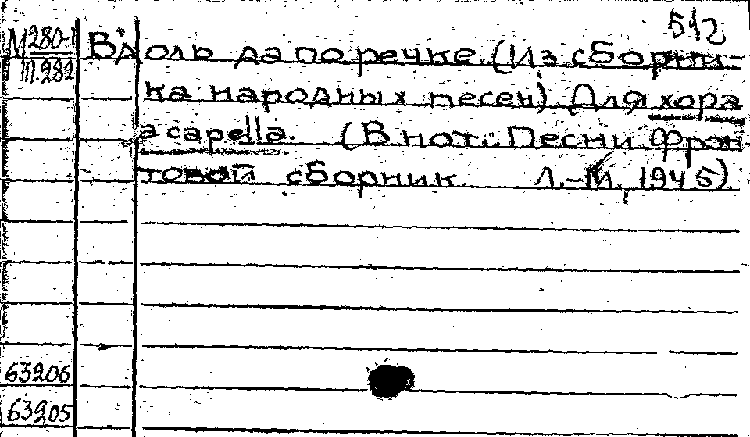 512
М280-1 Вдоль да по речке. (Из сборни-
III.282
ка народных песен) Для хора
a capella. (В нот.: Песни. Фрон-
товой сборник Л.-М., 1945)
63206
63205